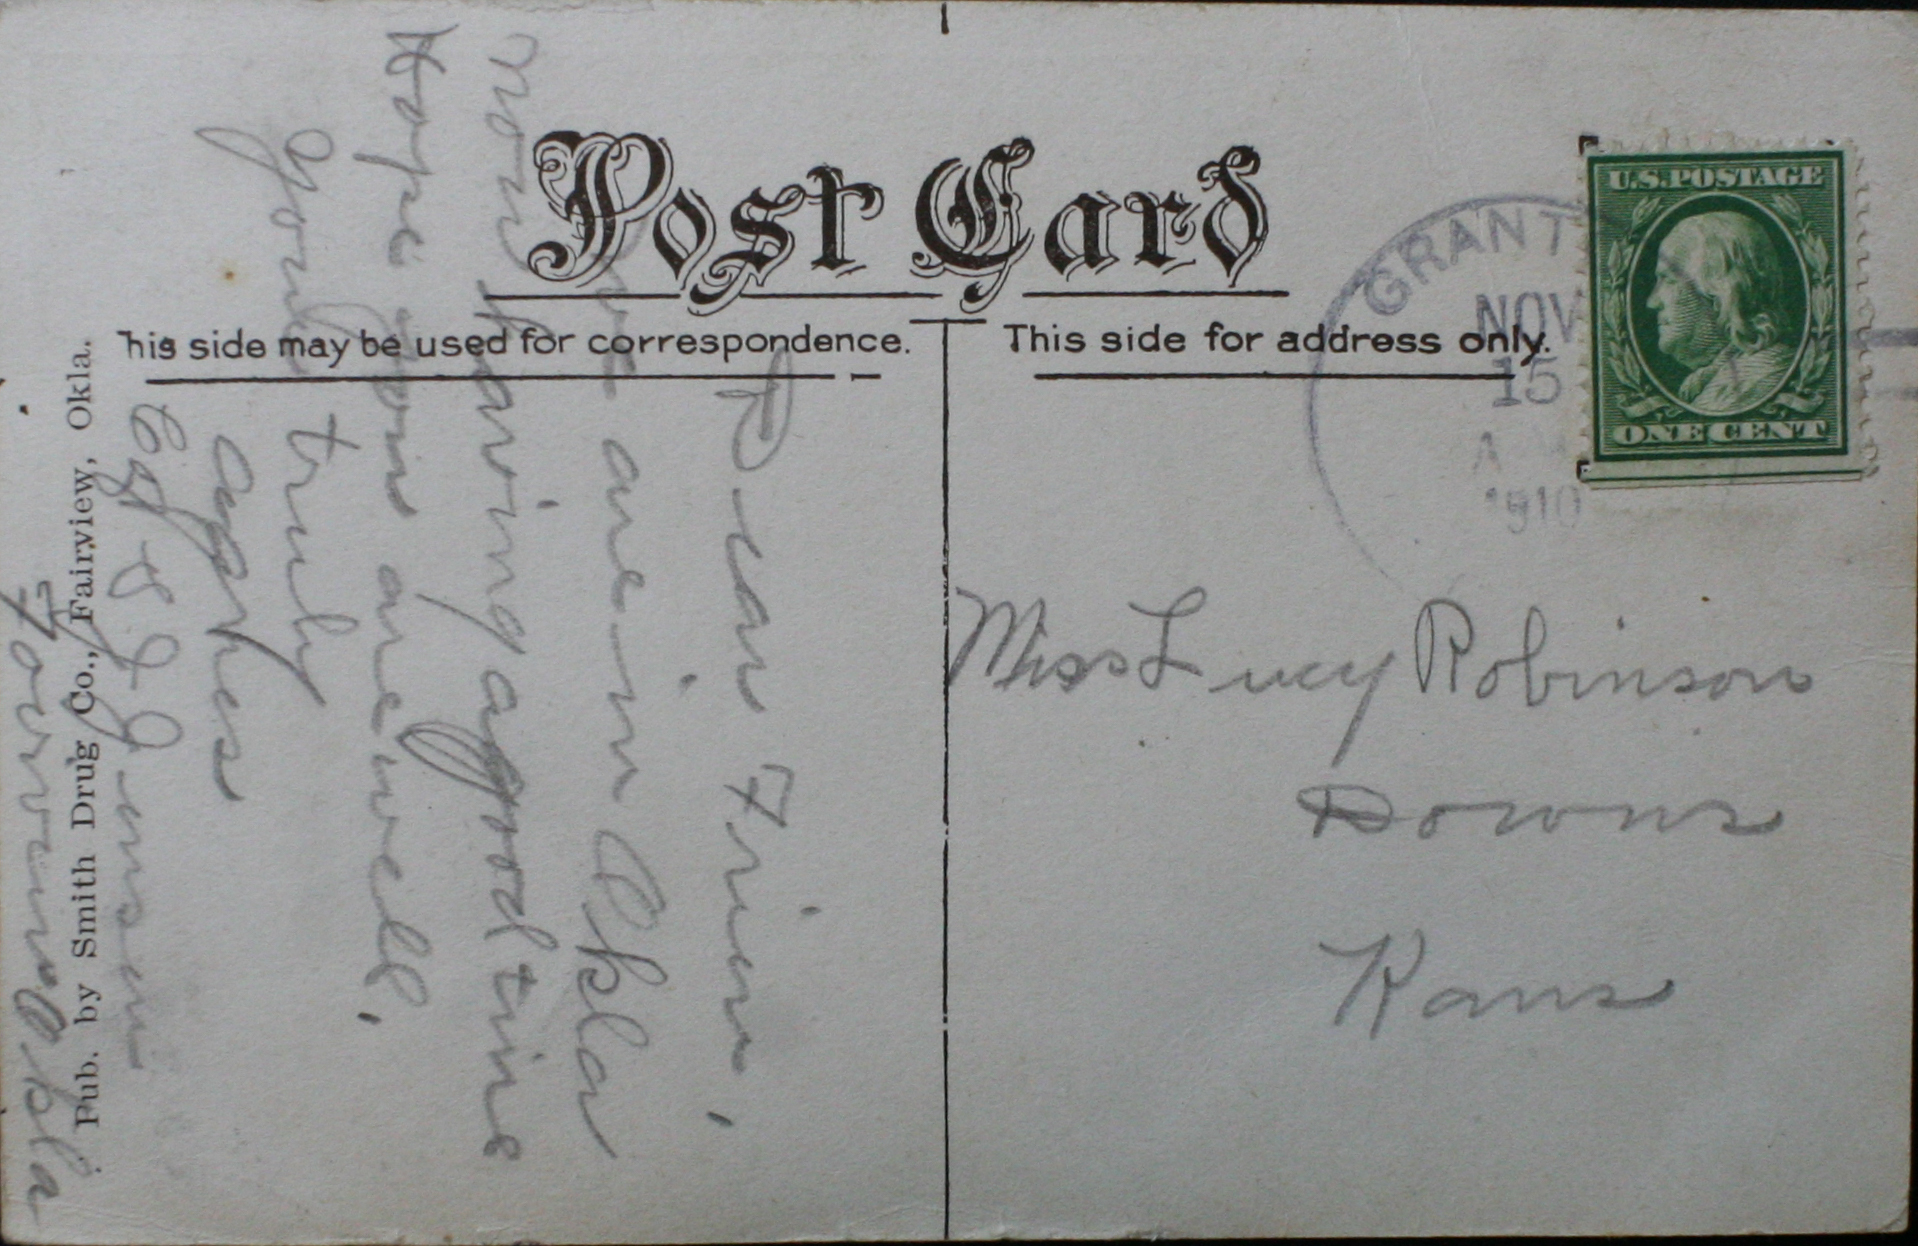 Post Card
his side may be used for correspondence.
This side for address only.
U.S.POSTAGE
ONE CENT
GRANT
NOV
15
A
1910
Miss Lucy Robinson
Downs
Kans
Dear Frien,
We are in Okla
now having a good time
Hope you are well,
Yours truly
Agnes
Okla
Pub. by Smith Drug Co., Fairview, Okla.